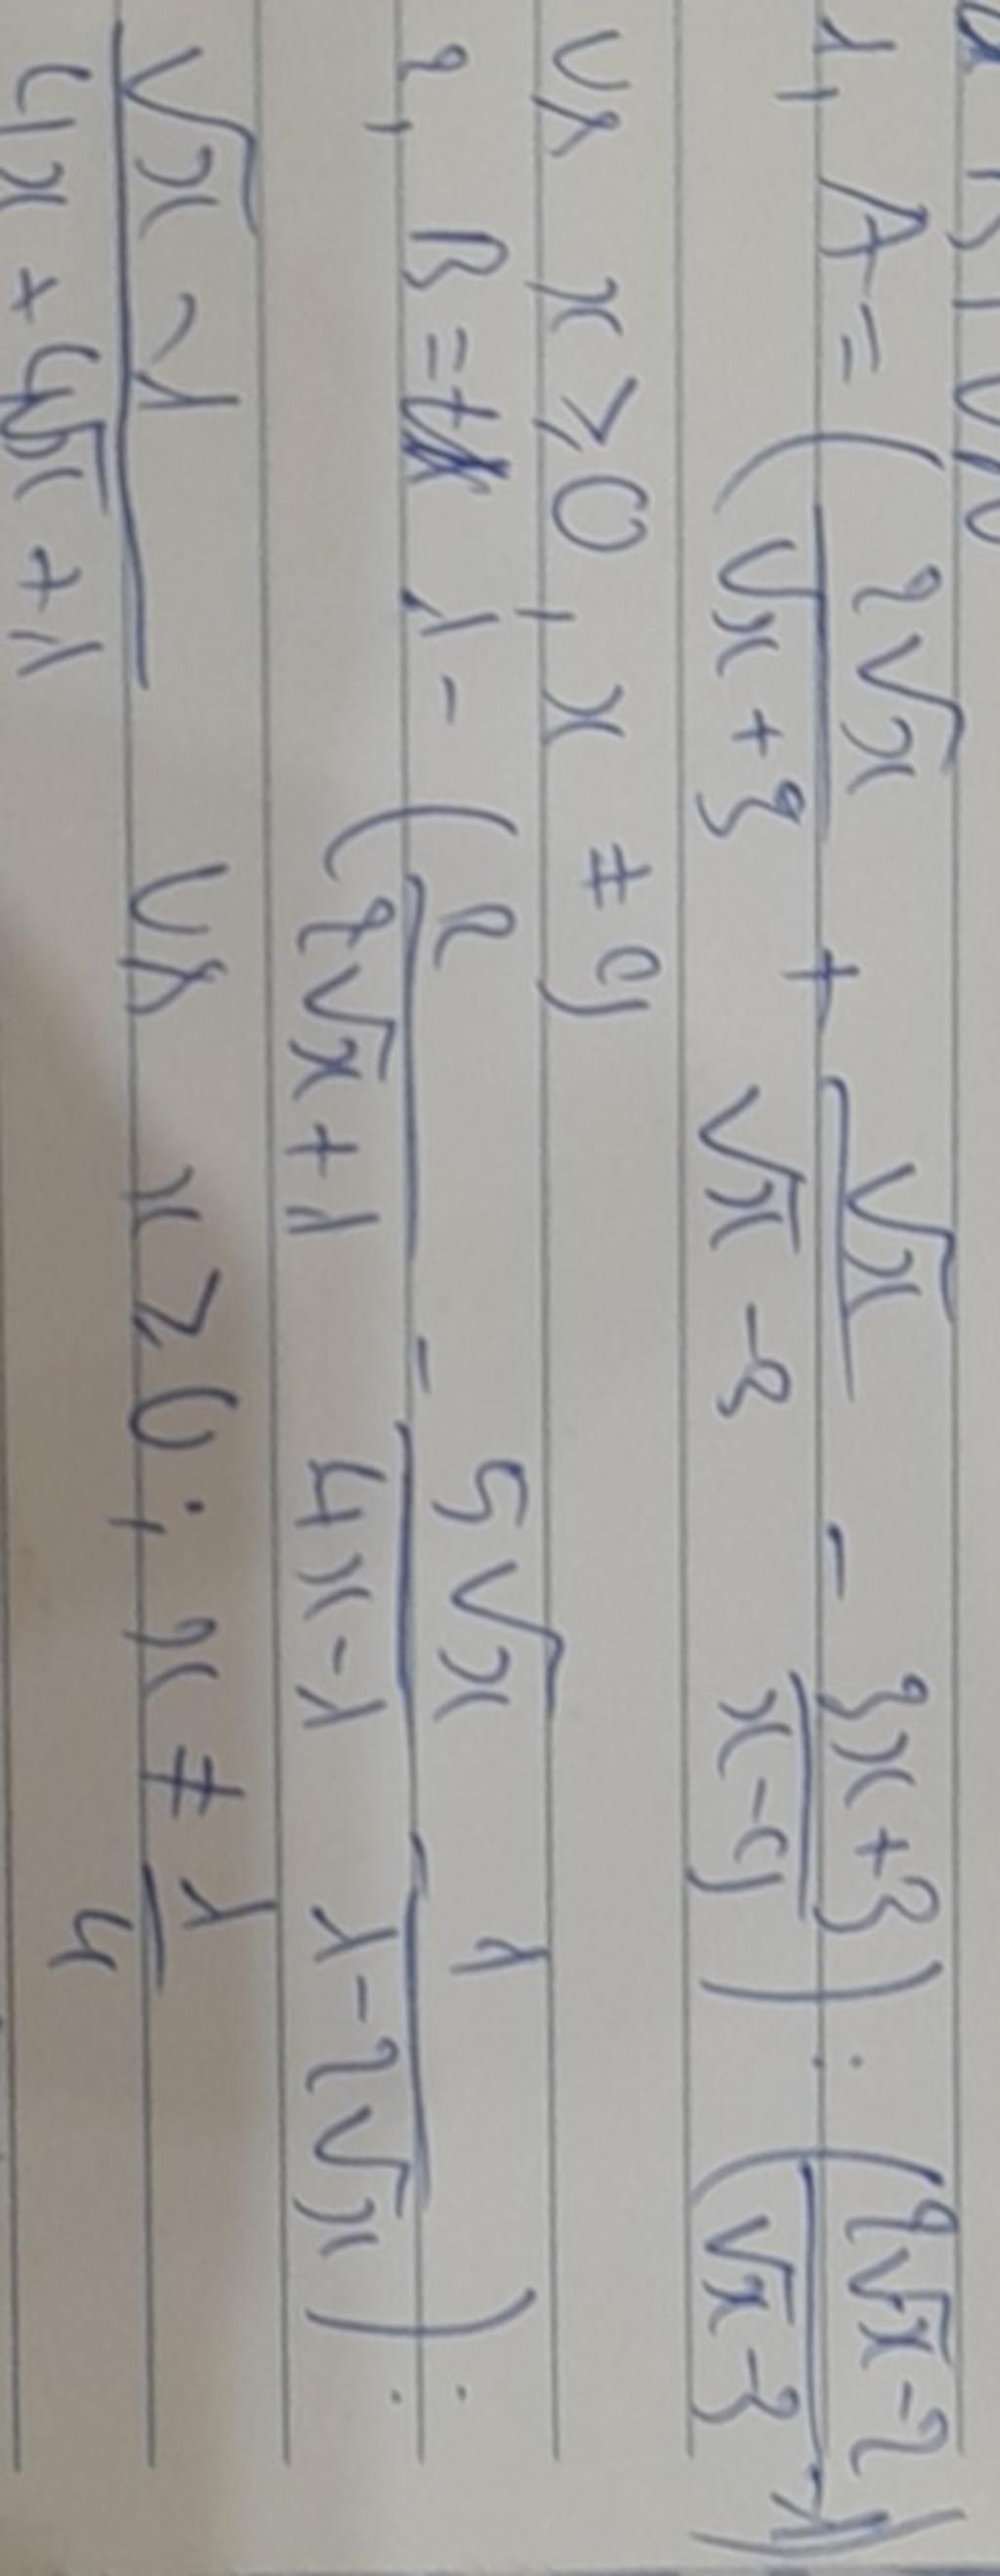 1, A = ( 2√x / (√x + 3) + √x / (√x - 3) - (3x + 3) / (x - 9) ) : ( (2√x - 2) / (√x - 3) - 1 )
Vs x ≥ 0, x ≠ 9
2, B = 1 - ( 2 / (2√x + 1) - 5√x / (4x - 1) - 1 / (1 - 2√x) ) :
(√x - 1) / (4x + 4√x + 1) Vs x ≥ 0 ; x ≠ 1/4